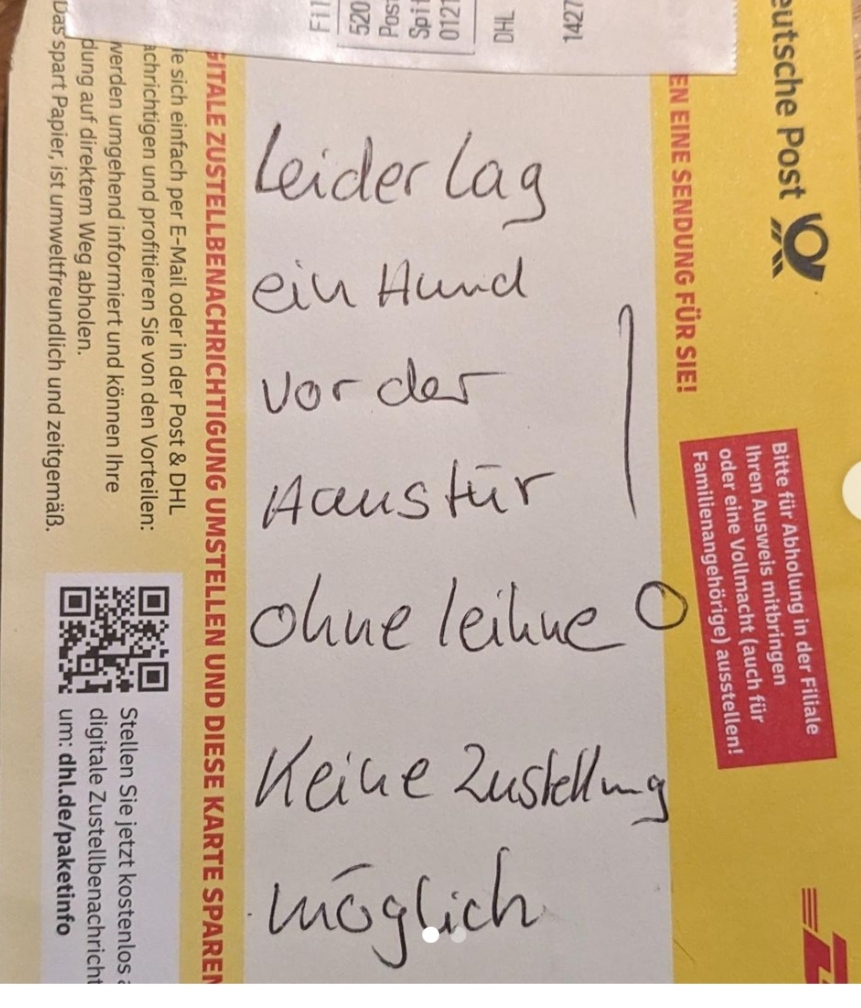 Leider lag
ein Hund
vor der
Haustür
ohne leihne!
Keine Zustellung
möglich
Deutsche Post
EN EINE SENDUNG FÜR SIE!
Bitte für Abholung in der Filiale
Ihren Ausweis mitbringen
oder eine Vollmacht (auch für
Familienangehörige) ausstellen!
GITALE ZUSTELLBENACHRICHTIGUNG UMSTELLEN UND DIESE KARTE SPAREN
ie sich einfach per E-Mail oder in der Post & DHL
achrichtigen und profitieren Sie von den Vorteilen:
werden umgehend informiert und können Ihre
dung auf direktem Weg abholen.
Das spart Papier, ist umweltfreundlich und zeitgemäß.
Stellen Sie jetzt kostenlos
digitale Zustellbenachricht
um: dhl.de/paketinfo
1427
DHL
0121
Spi
Pos
520
Fil